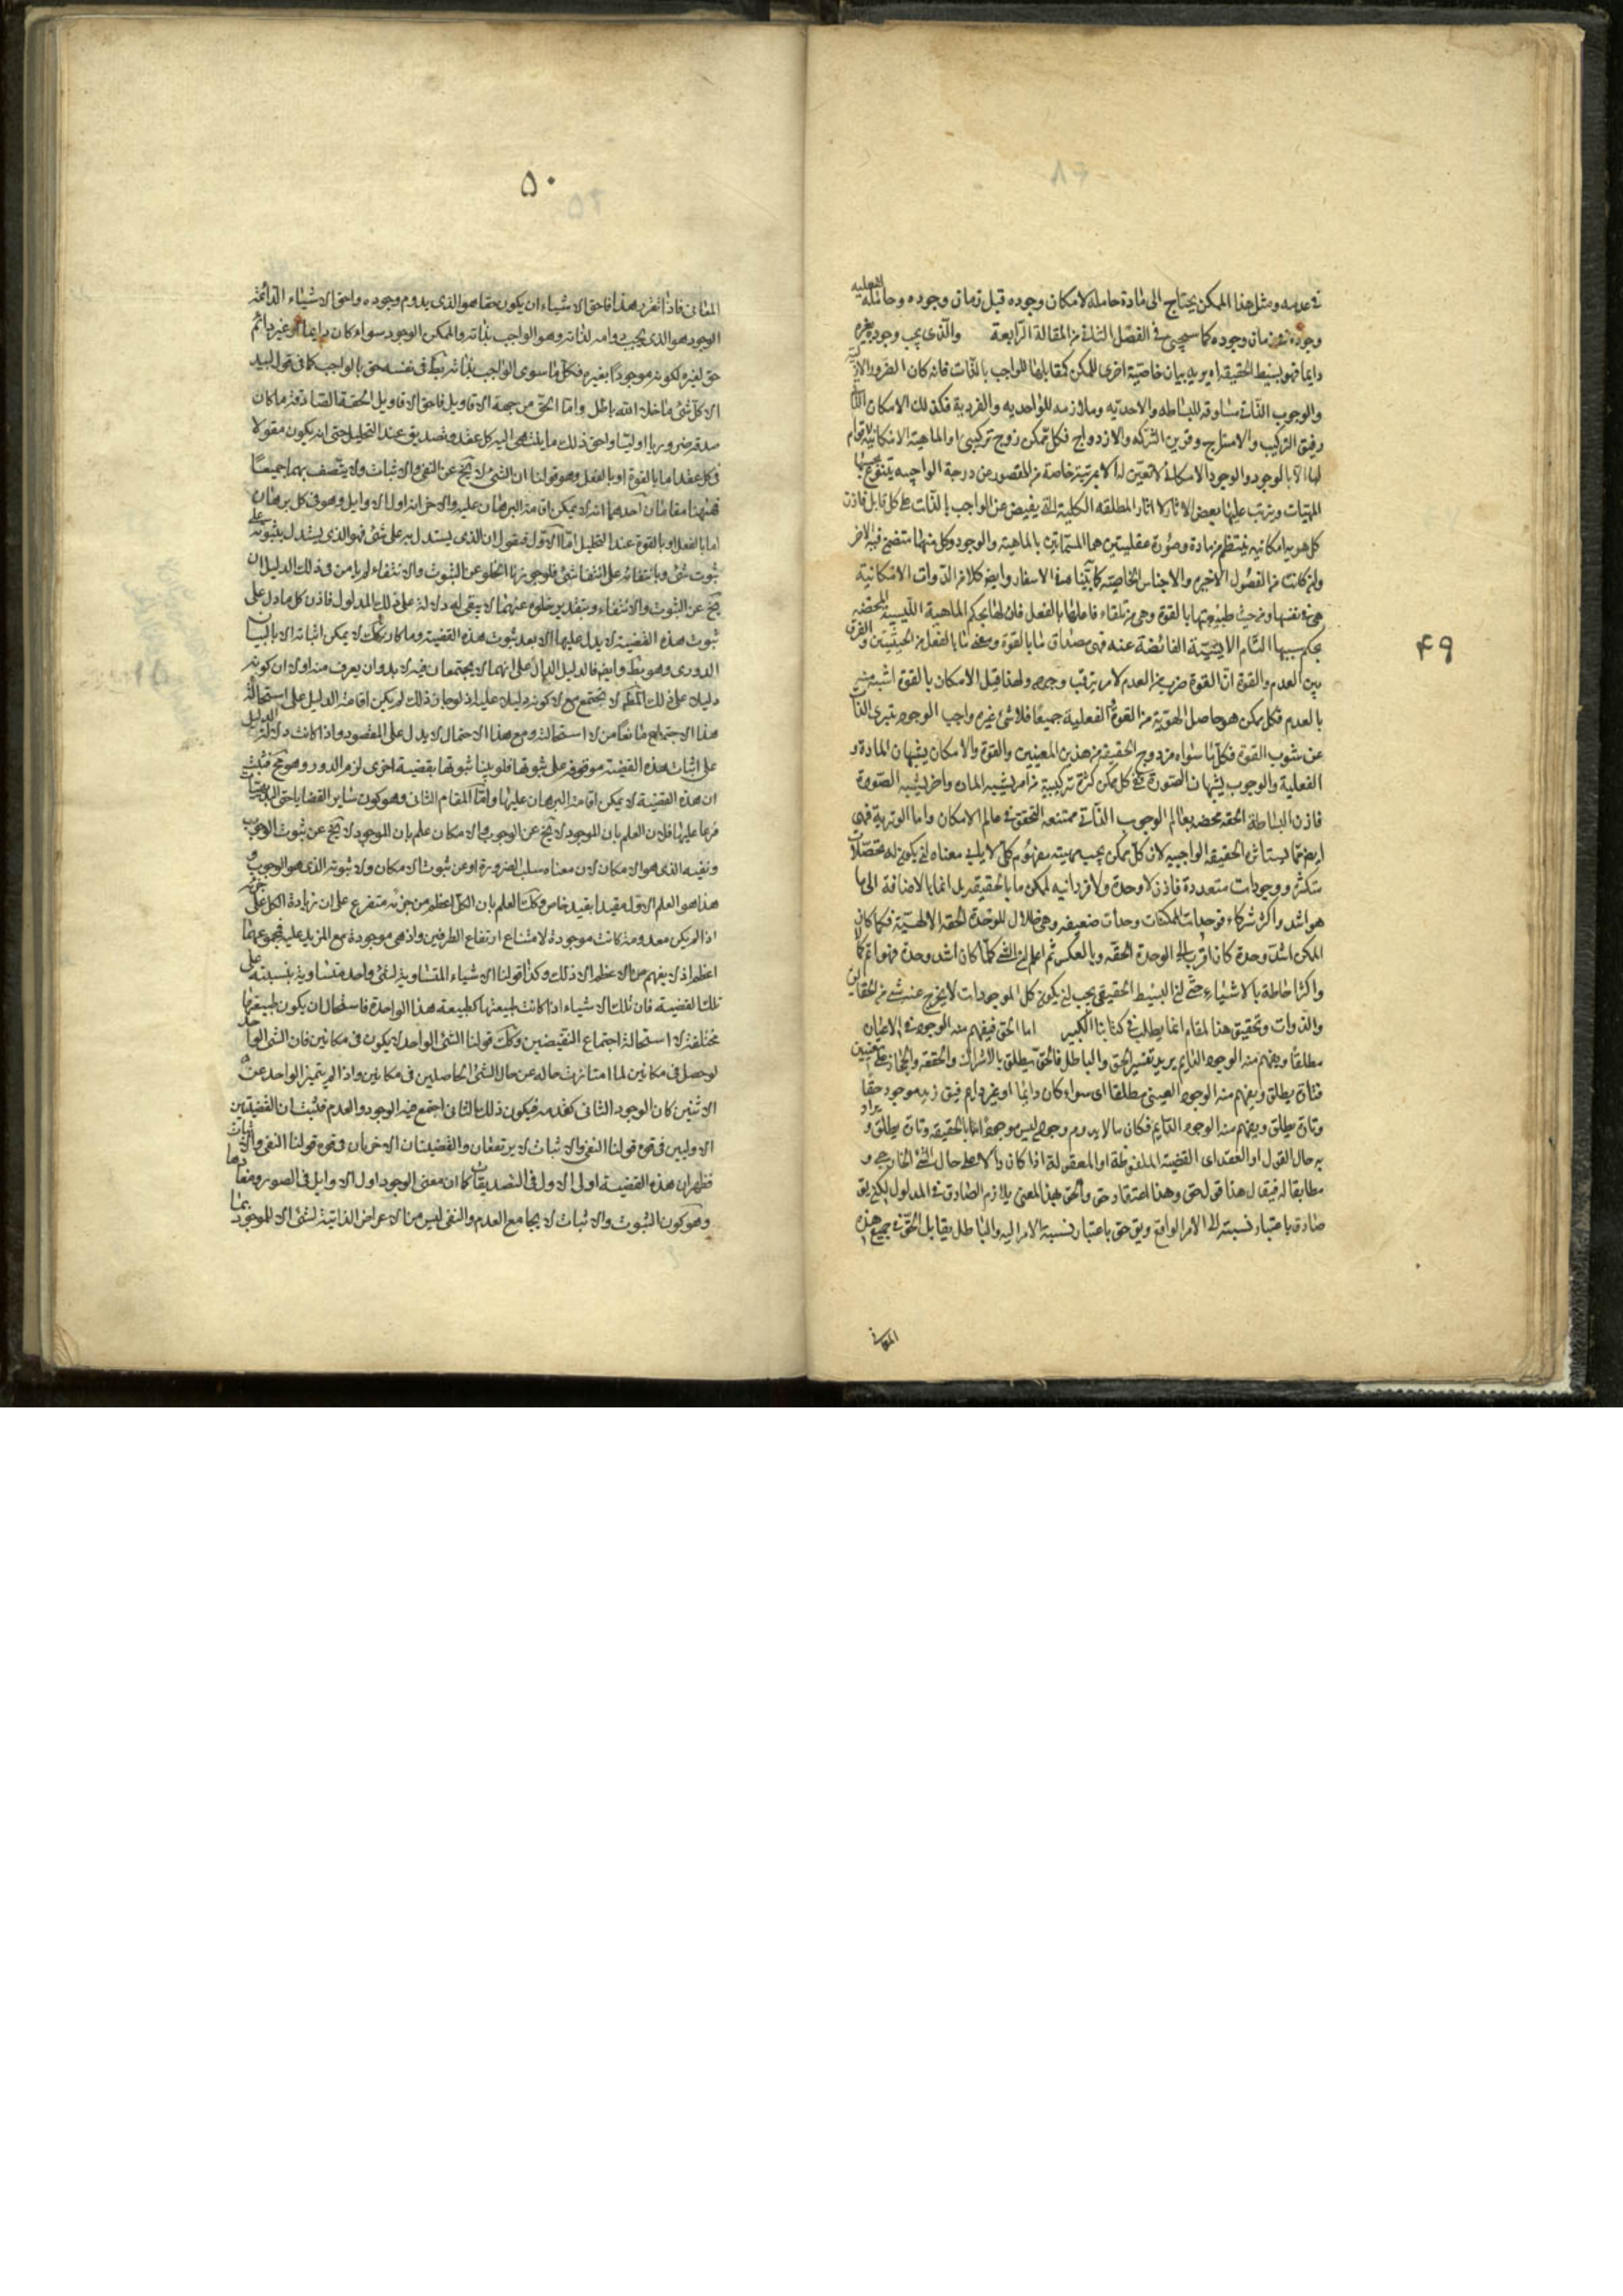 ۴۹
في عدمه ومثل هذا الممكن يحتاج الى مادة حاملة لامكان وجوده قبل زمان وجوده وحاملة لفعلية
وجوده في زمان وجوده كما سيجيء في الفصل الثاني من المقالة الرابعة والذي يجب وجوده بغيره
دايما فهو بسيط الحقيقة اه يريد بيان خاصية اخرى للممكن كمقابلها للواجب بالذات فانه كان الضرورة الازلية
والوجوب الذاتي مساوقه للبساطه والاحديه وملازمه للواحديه والفردية فكذلك الامكان الذاتي
رفيق التركيب والامتزاج وقرين الشركه والازدواج فكل ممكن زوج تركيبي اذ الماهية الامكانية لا قوام
لها الا بالوجود والوجود الامكاني لا تعين له الا بمرتبة خاصة من القصور عن درجة الواجبيه يتفرع بحسبها
المهيات ويترتب عليها بعض الاثار لا اثار المطلقه الكلية التي يفيض عن الواجب بالذات على كل قابل فاذن
كل هويه امكانيه ينتظم من مادة وصورة عقليتين هما المسماتين بالماهية والوجود وكل منهما متضمن فيه الاخر
وان كانت من الفصول الاخيرة والاجناس القاصيه كما بينا في الاسفار وايضا كلا من الذوات الامكانية
هي في نفسها ومن حيث طبيعتها بالقوة وهي من تلقاء فاعلها بالفعل فان لها بحكم الماهية الليسية المحضه
بحكم سببها التام الايسية الفائضة عنه فهي مصداق ما بالقوة ومعنى ما بالفعل من الحيثيتين والفرق
بين العدم والقوة ان القوة ضرب من العدم لامر يترقب وجوده ولهذا قيل الامكان بالقوة اشبه منه
بالعدم فكل ممكن هو حاصل الهوية من القوة والفعلية جميعا فلا شيء غير واجب الوجود متبري الذات
عن شوب القوة فكل ما سواه مزدوج الحقيقة من هذين المعنيين والقوة والامكان يشبهان المادة و
الفعلية والوجوب يشبهان الصورة ففي كل ممكن كثرة تركيبية من امر يشبه المادة واخر يشبه الصورة
فاذن البساطة الحقه محضه بعالم الوجوب الذاتي ممتنعه التحقق في عالم الامكان واما الوترية فهي
ايضا مما يستاثر الحقيقة الواجبيه لان كل ممكن بحسب مهيته مفهوم كلي لا يابى معناه ان يكون له تحصلات
متكثرة ووجودات متعددة فاذن لا وحدة ولا فردانيه لممكن ما بالحقيقه بل انما بالاضافة الى ما
هو اشد واكثر شركاء فوحدات الممكنات وحدات ضعيفه وهي ظلال للوحدة الحقه الالهية فكلما كان
الممكن اشد وحدة كان اقرب الى الوحدة الحقه وبالعكس ثم اعلم ان الشي كلما كان اشد وحدة فهو اتم كمالا
واكثر احاطة بالاشياء حتى ان البسيط الحقيقي يجب ان يكون كل الموجودات لا يخرج عنه شيء من الحقايق
والذوات وتحقيق هذا المقام انما يطلب في كتابنا الكبير اما الحق فيفهم منه الوجود في الاعيان
مطلقا ويفهم منه الوجود الدايم يريد تفسير الحق والباطل فالحق يطلق بالاشتراك والحقيقه والمجاز على معنيين
فتارة يطلق ويفهم منه الوجود العيني مطلقا اي سواء كان دايما او غير دايم فيق زيد موجود حقا
وتارة يطلق ويفهم منه الوجود الدايم فكان ما لا يدوم وجوده ليس موجودا بالحقيقه وتارة يطلق و يراد
به حال القول او العقد اي القضيه الملفوظة او المعقولة اذا كان دالا على حال الشي الخارجي و
مطابقا له فيقال هذا قول حق وهذا اعتقاد حق والحق بهذا المعنى يلازم الصادق في المدلول لكن يق
صادق باعتبار نسبته الى الامر الواقع ويق حق باعتبار نسبة الامر اليه والباطل يقابل الحق في جميع هذه
المعاني
۵۰
المعاني فاذا تقرر هذا فاحق الاشياء ان يكون حقا هو الذي يدوم وجوده واحق الاشياء الدائمة
الوجود هو الذي يجب دوامه لذاته وهو الواجب بذاته والممكن الوجود سواء كان دايما او غير دائم
حق لغيره لكونه موجودا بغيره فكل ما سوى الواجب بذاته باطل في نفسه حق بالواجب كما في قول لبيد
الا كل شيء ما خلا الله باطل واما الحق من جهة الاقاويل فاحق الاقاويل الحقة الصادقة ما كان
صدقه ضروريا اوليا واحق ذلك ما ينتهي اليه كل عقد وتصديق عند التحليل حتى انه يكون مقولا
في كل عقد اما بالقوة او بالفعل وهو قولنا ان الشيء لا يخ عن النفي والاثبات ولا يتصف بهما جميعا
فههنا مقامان احدهما انه لا يمكن اقامة البرهان عليه والاخر انه اول الاوايل وهو في كل برهان
اما بالفعل او بالقوة عند التحليل اما الاول فنقول ان الذي يستدل به على شيء فهو الذي يستدل بثبوته على
ثبوت شيء وبانتفائه على انتفاء شيء فلو جوزنا الخلو عن الثبوت والانتفاء لم يامن في ذلك الدليل ان
يخ عن الثبوت والانتفاء وبتقدير خلوه عنهما لا يبقى له دلالة على ذلك المدلول فاذن كل ما دل على
ثبوت هذه القضية لا يدل عليها الا بعد ثبوت هذه القضية وما كان كك لا يمكن اثباته الا بالبيان
الدوري وهو بط وايضا فالدليل الدال على انهما لا يجتمعان فيه لا بد وان يعرف منه اولا ان كونه
دليلا على ذلك المط لا يجتمع مع لا كونه دليلا عليه اذ لو جاز ذلك لم يكن اقامة الدليل على استحالة
هذا الاجتماع مانعا من لا استحالته ومع هذا الاحتمال لا يدل على المقصود واذا كانت دلالة الدليل
على اثبات هذه القضية موقوفة على ثبوتها فلو بينا ثبوتها بقضية اخرى لزم الدور وهو مح فثبت
ان هذه القضية لا يمكن اقامة البرهان عليها واما المقام الثاني وهو كون ساير القضايا حتى البديهيات
فرعا عليها فلان العلم بان الموجود لا يخ عن الوجوب والامكان علم بان الموجود لا يخ عن ثبوت الوجوب
ونفيه الذي هو الامكان لان معناه سلب الضرورة او عن ثبوت الامكان ولا ثبوته الذي هو الوجوب و
هذا هو العلم الاول مقيدا بقيد خاص وكك العلم بان الكل اعظم من جزئه متفرع على ان زيادة الكل على جزئه
اذا لم يكن معدومة كانت موجودة لامتناع ارتفاع الطرفين واذ هي موجودة مع المزيد عليه فمجموعهما
اعظم اذ لا يفهم من الاعظم الا ذلك وكذا قولنا الاشياء المتساوية لشئ واحد متساوية بنسبته على
تلك القضية فان تلك الاشياء اذا كانت طبيعتها كطبيعة هذا الواحدة فاستحال ان يكون طبيعتها
مختلفة لاستحالة اجتماع النقيضين وكك قولنا الشئ الواحد لا يكون في مكانين فان الشئ الواحد
لو حصل في مكانين لما امتازت حاله عن حال الشئ الحاصلين في مكانين واذا لم يتميز الواحد عن
الاثنين كان الوجود الثاني كعدمه فيكون ذلك الثاني اجتمع فيه الوجود والعدم فثبت ان القضيتين
الاوليين في قوة قولنا النفي والاثبات لا يرتفعان والقضيتان الاخريان في قوة قولنا النفي والاثبات
فظهر ان هذه القضية اول الاول في التصديقات كما ان معنى الوجود اول الاوايل في الصور ومفادها
وهو كون الثبوت والاثبات لا يجامع العدم والنفي ليس من الاعراض الذاتية لشئ الا للموجود بما